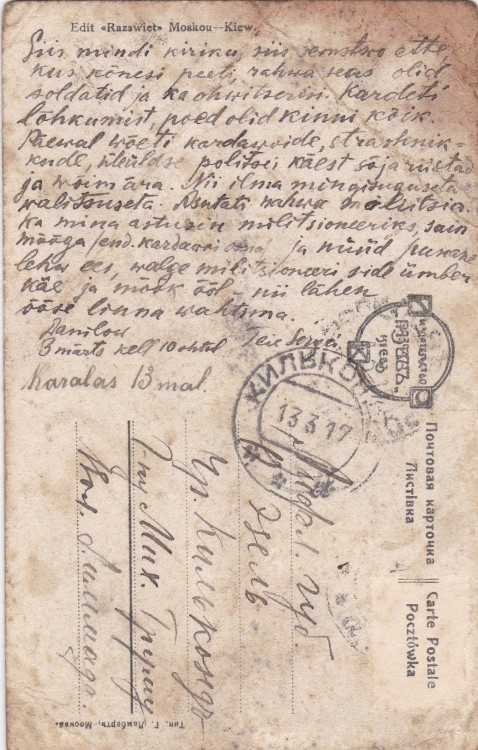 Edit «Razswiet» Moskou—Kiew.
Siis mindi kiriku, siis semstwo ette,
kus kõnesi peeti, rahwa seas olid
soldatid ja ka ohwitserisi. Kardeti
lõhkumist, poed olid kinni kõik.
Päewal wõeti kardawoide, strashnik-
kude, üleüldse politsei käest sõjariistad
ja wõim ära. Nii ilma mingisuguseta
walitsuseta. Asutati rahwa militsia.
Ka mina astusin militsioneeriks, sain
mõõga ja nüüd punane
lehw ees, walge militsioneeri side ümber
käe ja mõõk ööl, nii lähen
öösel linna wahtima.
Danilow
3 märts kell 10 õhtul
Karalas 13 mal.
КИЛЬКОН
13 3 17
Почтовая карточка
Листівка
Carte Postale
Pocztówka
Лифл. губ.
о. Эзель
Чр. Килькондъ
Г-ну Мих.
Тип. Г. Ламбертъ, Москва.